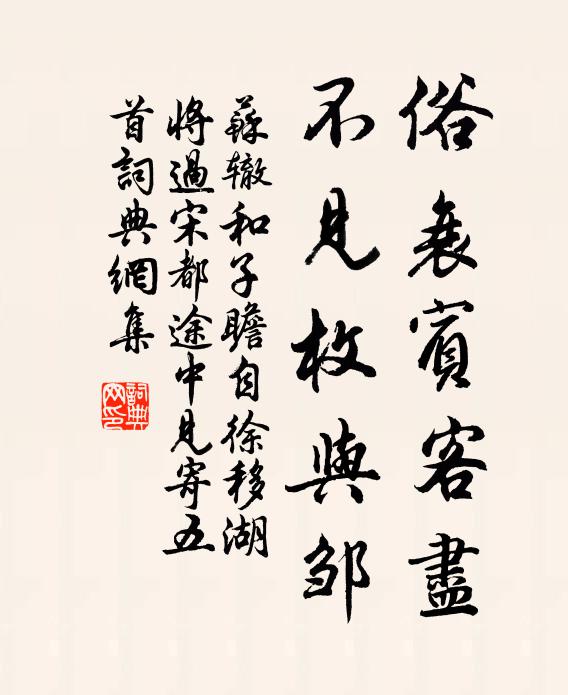 俗衰賓客盡
不見枚與邹
蘇辙和子瞻自徐移湖
將過宋都途中見寄五
首詞典網集
詞典
网印